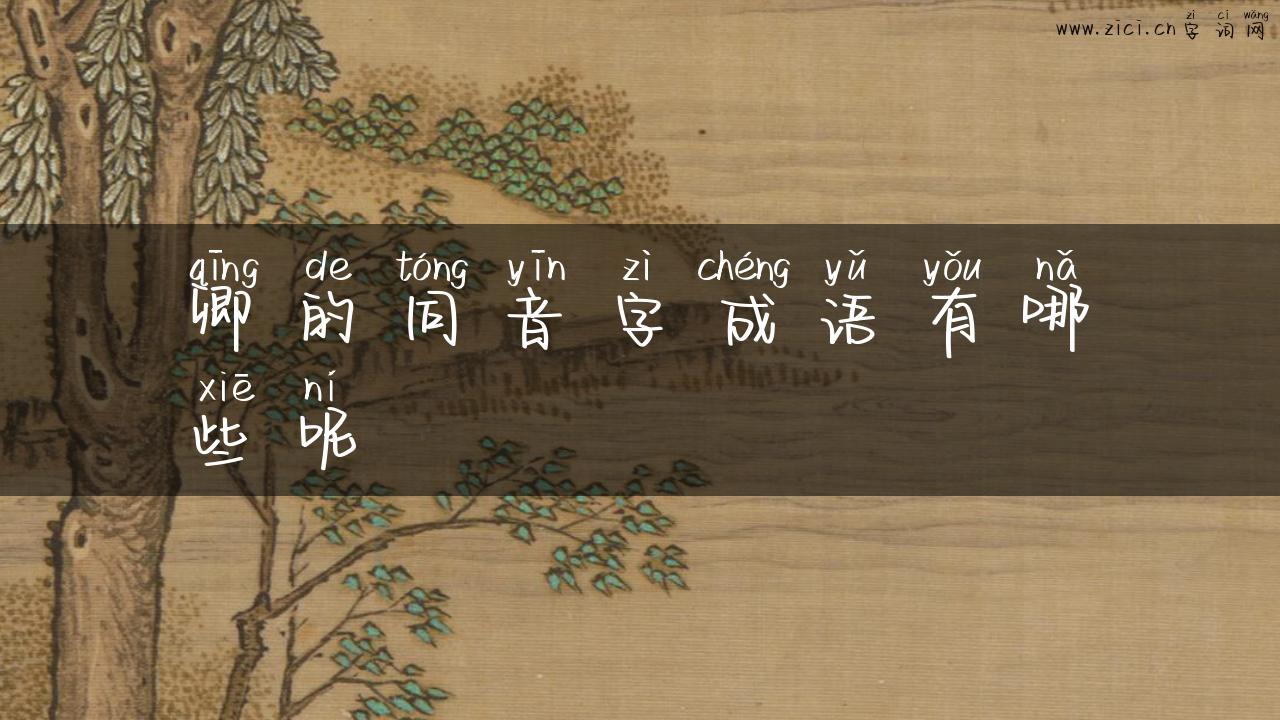 zì cí wǎng
www.zici.cn 字词网
qīng de tóng yīn zì chéng yǔ yǒu nǎ
卿的同音字成语有哪
xiē ní
些呢